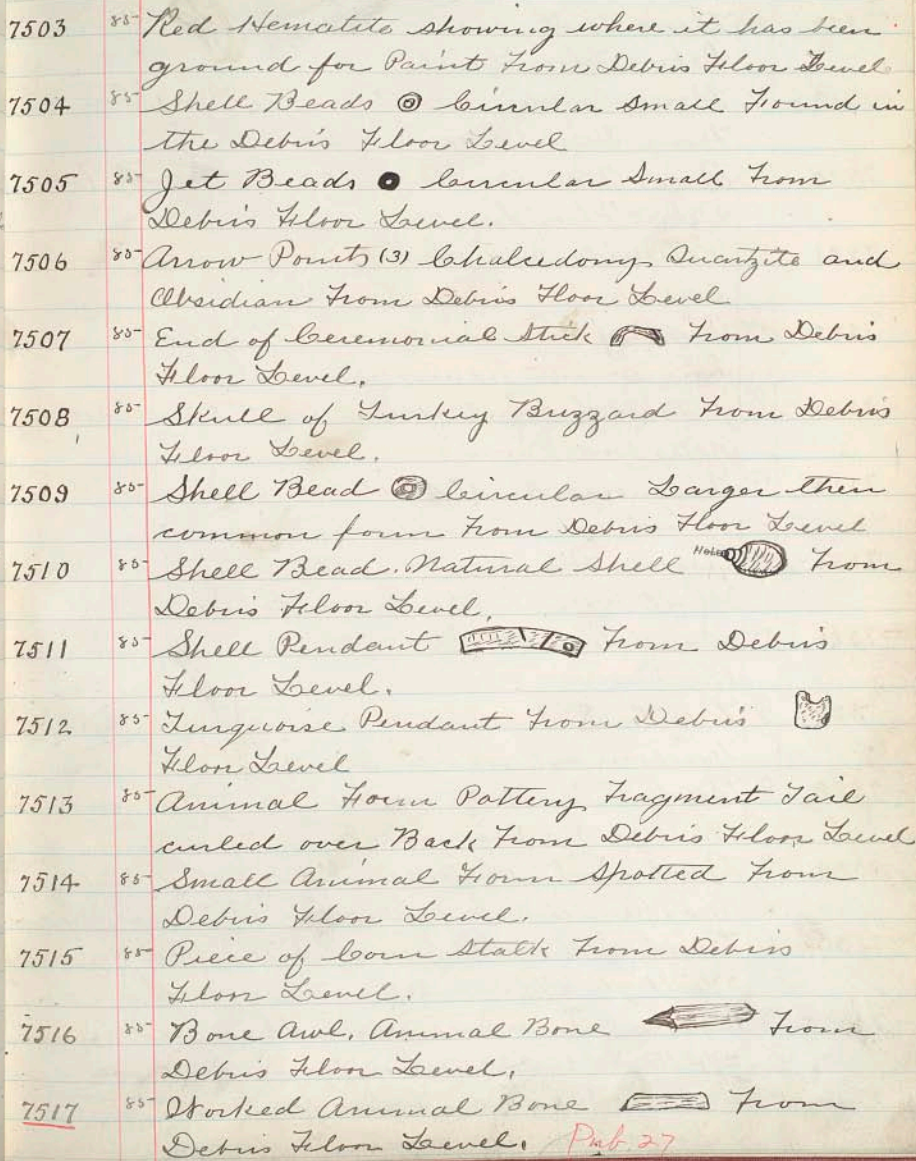 7503 85 Red Hematite showing where it has been
ground for Paint From Debris Floor Level
7504 85 Shell Beads Circular Small Found in
the Debris Floor Level
7505 85 Jet Beads Circular Small From
Debris Floor Level.
7506 85 Arrow Points (3) Chalcedony Quartzite and
Obsidian From Debris Floor Level
7507 85 End of Ceremonial Stick From Debris
Floor Level.
7508 85 Skull of Turkey Buzzard From Debris
Floor Level.
7509 85 Shell Bead Circular Larger then
common form From Debris Floor Level
7510 85 Shell Bead. Natural Shell Hole From
Debris Floor Level.
7511 85 Shell Pendant From Debris
Floor Level.
7512 85 Turquoise Pendant From Debris
Floor Level
7513 85 Animal Form Pottery Fragment Tail
curled over Back From Debris Floor Level
7514 85 Small Animal Form Spotted From
Debris Floor Level.
7515 85 Piece of Corn Stalk From Debris
Floor Level.
7516 85 Bone Awl. Animal Bone From
Debris Floor Level.
7517 85 Worked Animal Bone From
Debris Floor Level. Pub. 27